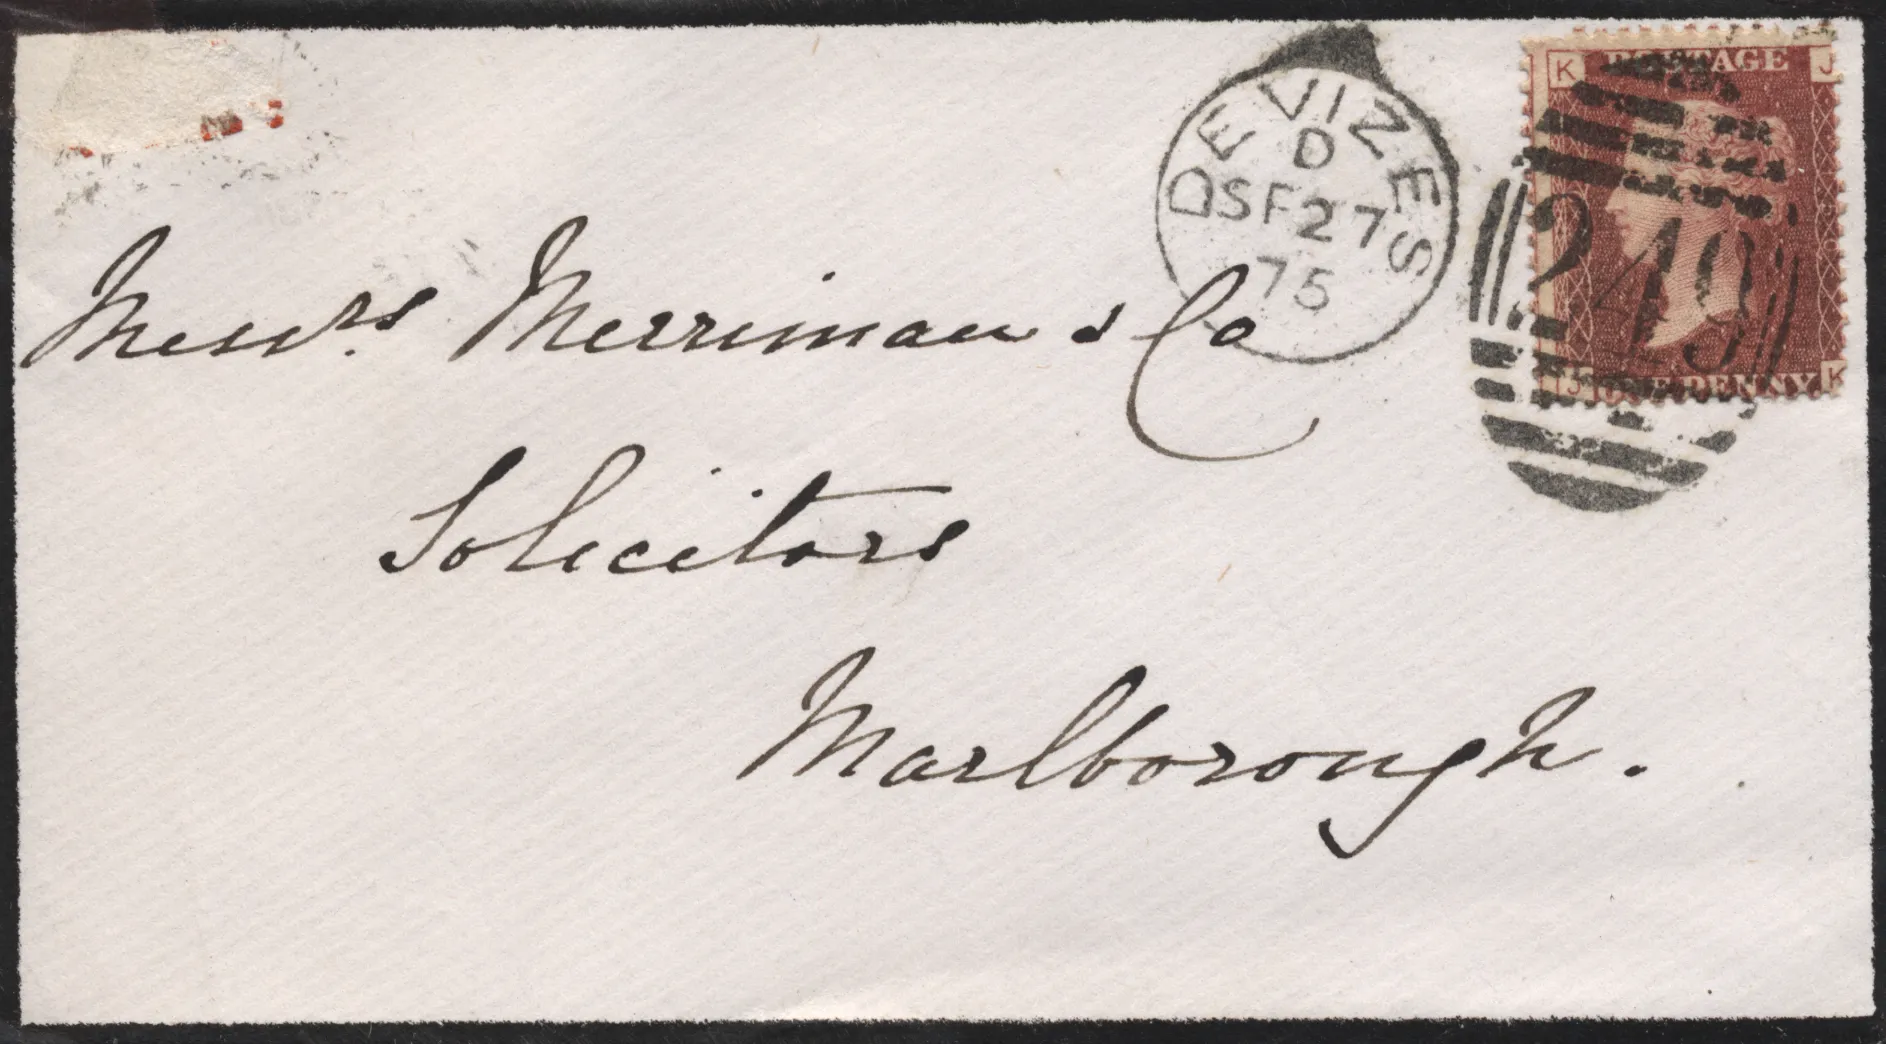 K POSTAGE J
DEVIZES
D
SF27
75
249
J ONE PENNY K
Messrs Merriman & Co
Solicitors
Marlborough.